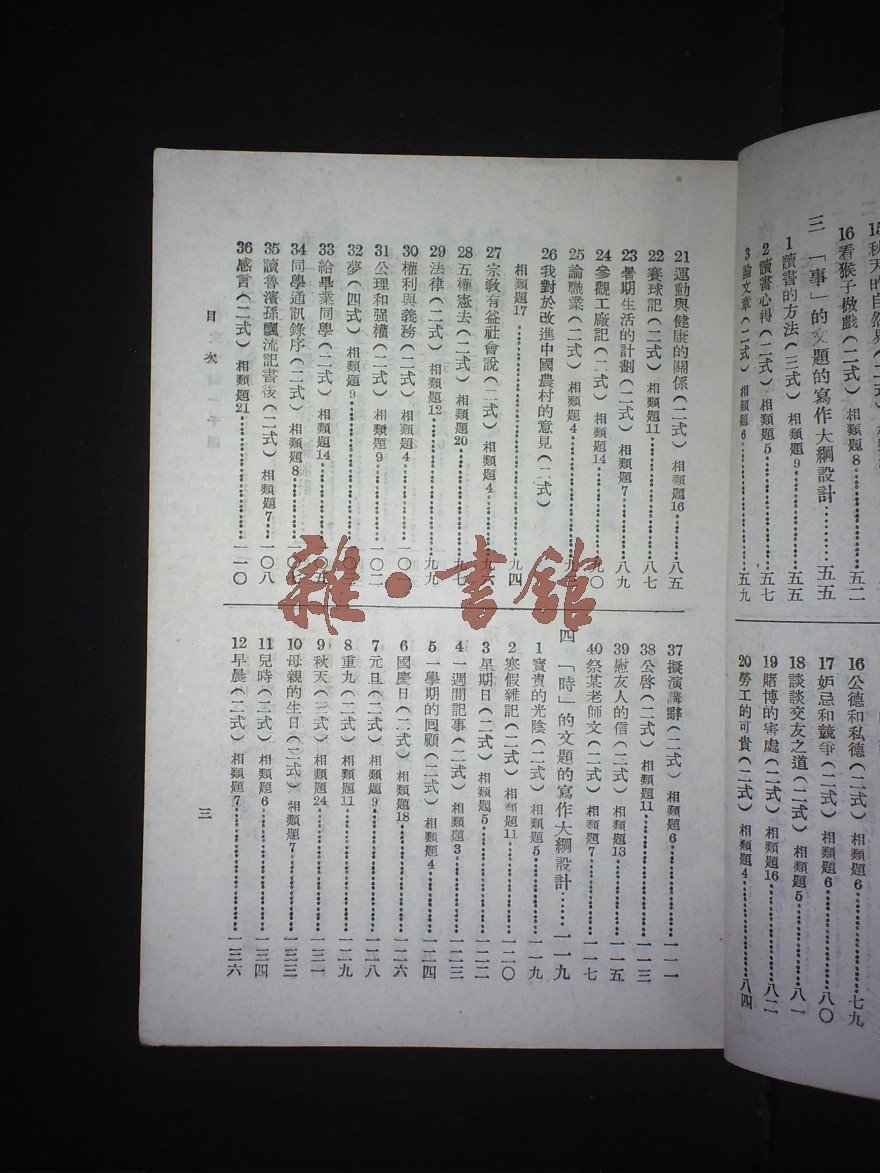 秋天的自然界(二式)
16看猴子做戲(二式) 相類題8⋯⋯五二
三 「事」的文題的寫作大綱設計⋯⋯五五
1讀書的方法(三式) 相類題9⋯⋯五五
2讀書心得(二式) 相類題5⋯⋯五七
3論文章(二式) 相類題6⋯⋯五九
16公德和私德(二式) 相類題6⋯⋯七九
17妒忌和競爭(二式) 相類題6⋯⋯八〇
18談談交友之道(二式) 相類題5⋯⋯八一
19賭博的害處(二式) 相類題16⋯⋯八二
20勞工的可貴(二式) 相類題4⋯⋯八四
21運動與健康的關係(二式) 相類題16⋯⋯八五
22賽球記(二式) 相類題11⋯⋯八七
23暑期生活的計劃(二式) 相類題7⋯⋯八九
24參觀工廠記(二式) 相類題14⋯⋯九〇
25論職業(二式) 相類題4⋯⋯九
26我對於改進中國農村的意見(二式)
相類題17⋯⋯九四
27宗敎有益社會說(二式) 相類題4⋯⋯九六
28五權憲法(二式) 相類題20⋯⋯九七
29法律(二式) 相類題12⋯⋯九九
30權利與義務(二式) 相類題4⋯⋯一〇
31公理和强權(二式) 相類題9⋯⋯一〇二
32夢(四式) 相類題9⋯⋯一〇
33給畢業同學(二式) 相類題14⋯⋯一〇五
34同學通訊錄序(二式) 相類題8⋯⋯一〇
35讀魯濱孫飄流記書後(二式) 相類題7⋯⋯一〇八
36感言(二式) 相類題21⋯⋯一一〇
37擬演講辭(二式) 相類題6⋯⋯一一一
38公啓(二式) 相類題11⋯⋯一一三
39慰友人的信(二式) 相類題13⋯⋯一一五
40祭某老師文(二式) 相類題7⋯⋯一一七
四 「時」的文題的寫作大綱設計⋯⋯一一九
1寶貴的光陰(二式) 相類題5⋯⋯一一九
2寒假雜記(二式) 相類題11⋯⋯一二〇
3星期日(二式) 相類題5⋯⋯一二二
4一週間記事(二式) 相類題3⋯⋯一二三
5一學期的囘顧(二式) 相類題4⋯⋯一二四
6國慶日(二式) 相類題18⋯⋯一二六
7元旦(二式) 相類題9⋯⋯一二八
8重九(二式) 相類題11⋯⋯一二九
9秋天(三式) 相類題24⋯⋯一三一
10母親的生日(二式) 相類題7⋯⋯一三三
11兒時(二式) 相類題6⋯⋯一三四
12早晨(二式) 相類題7⋯⋯一三六
目次
三
雜·書館